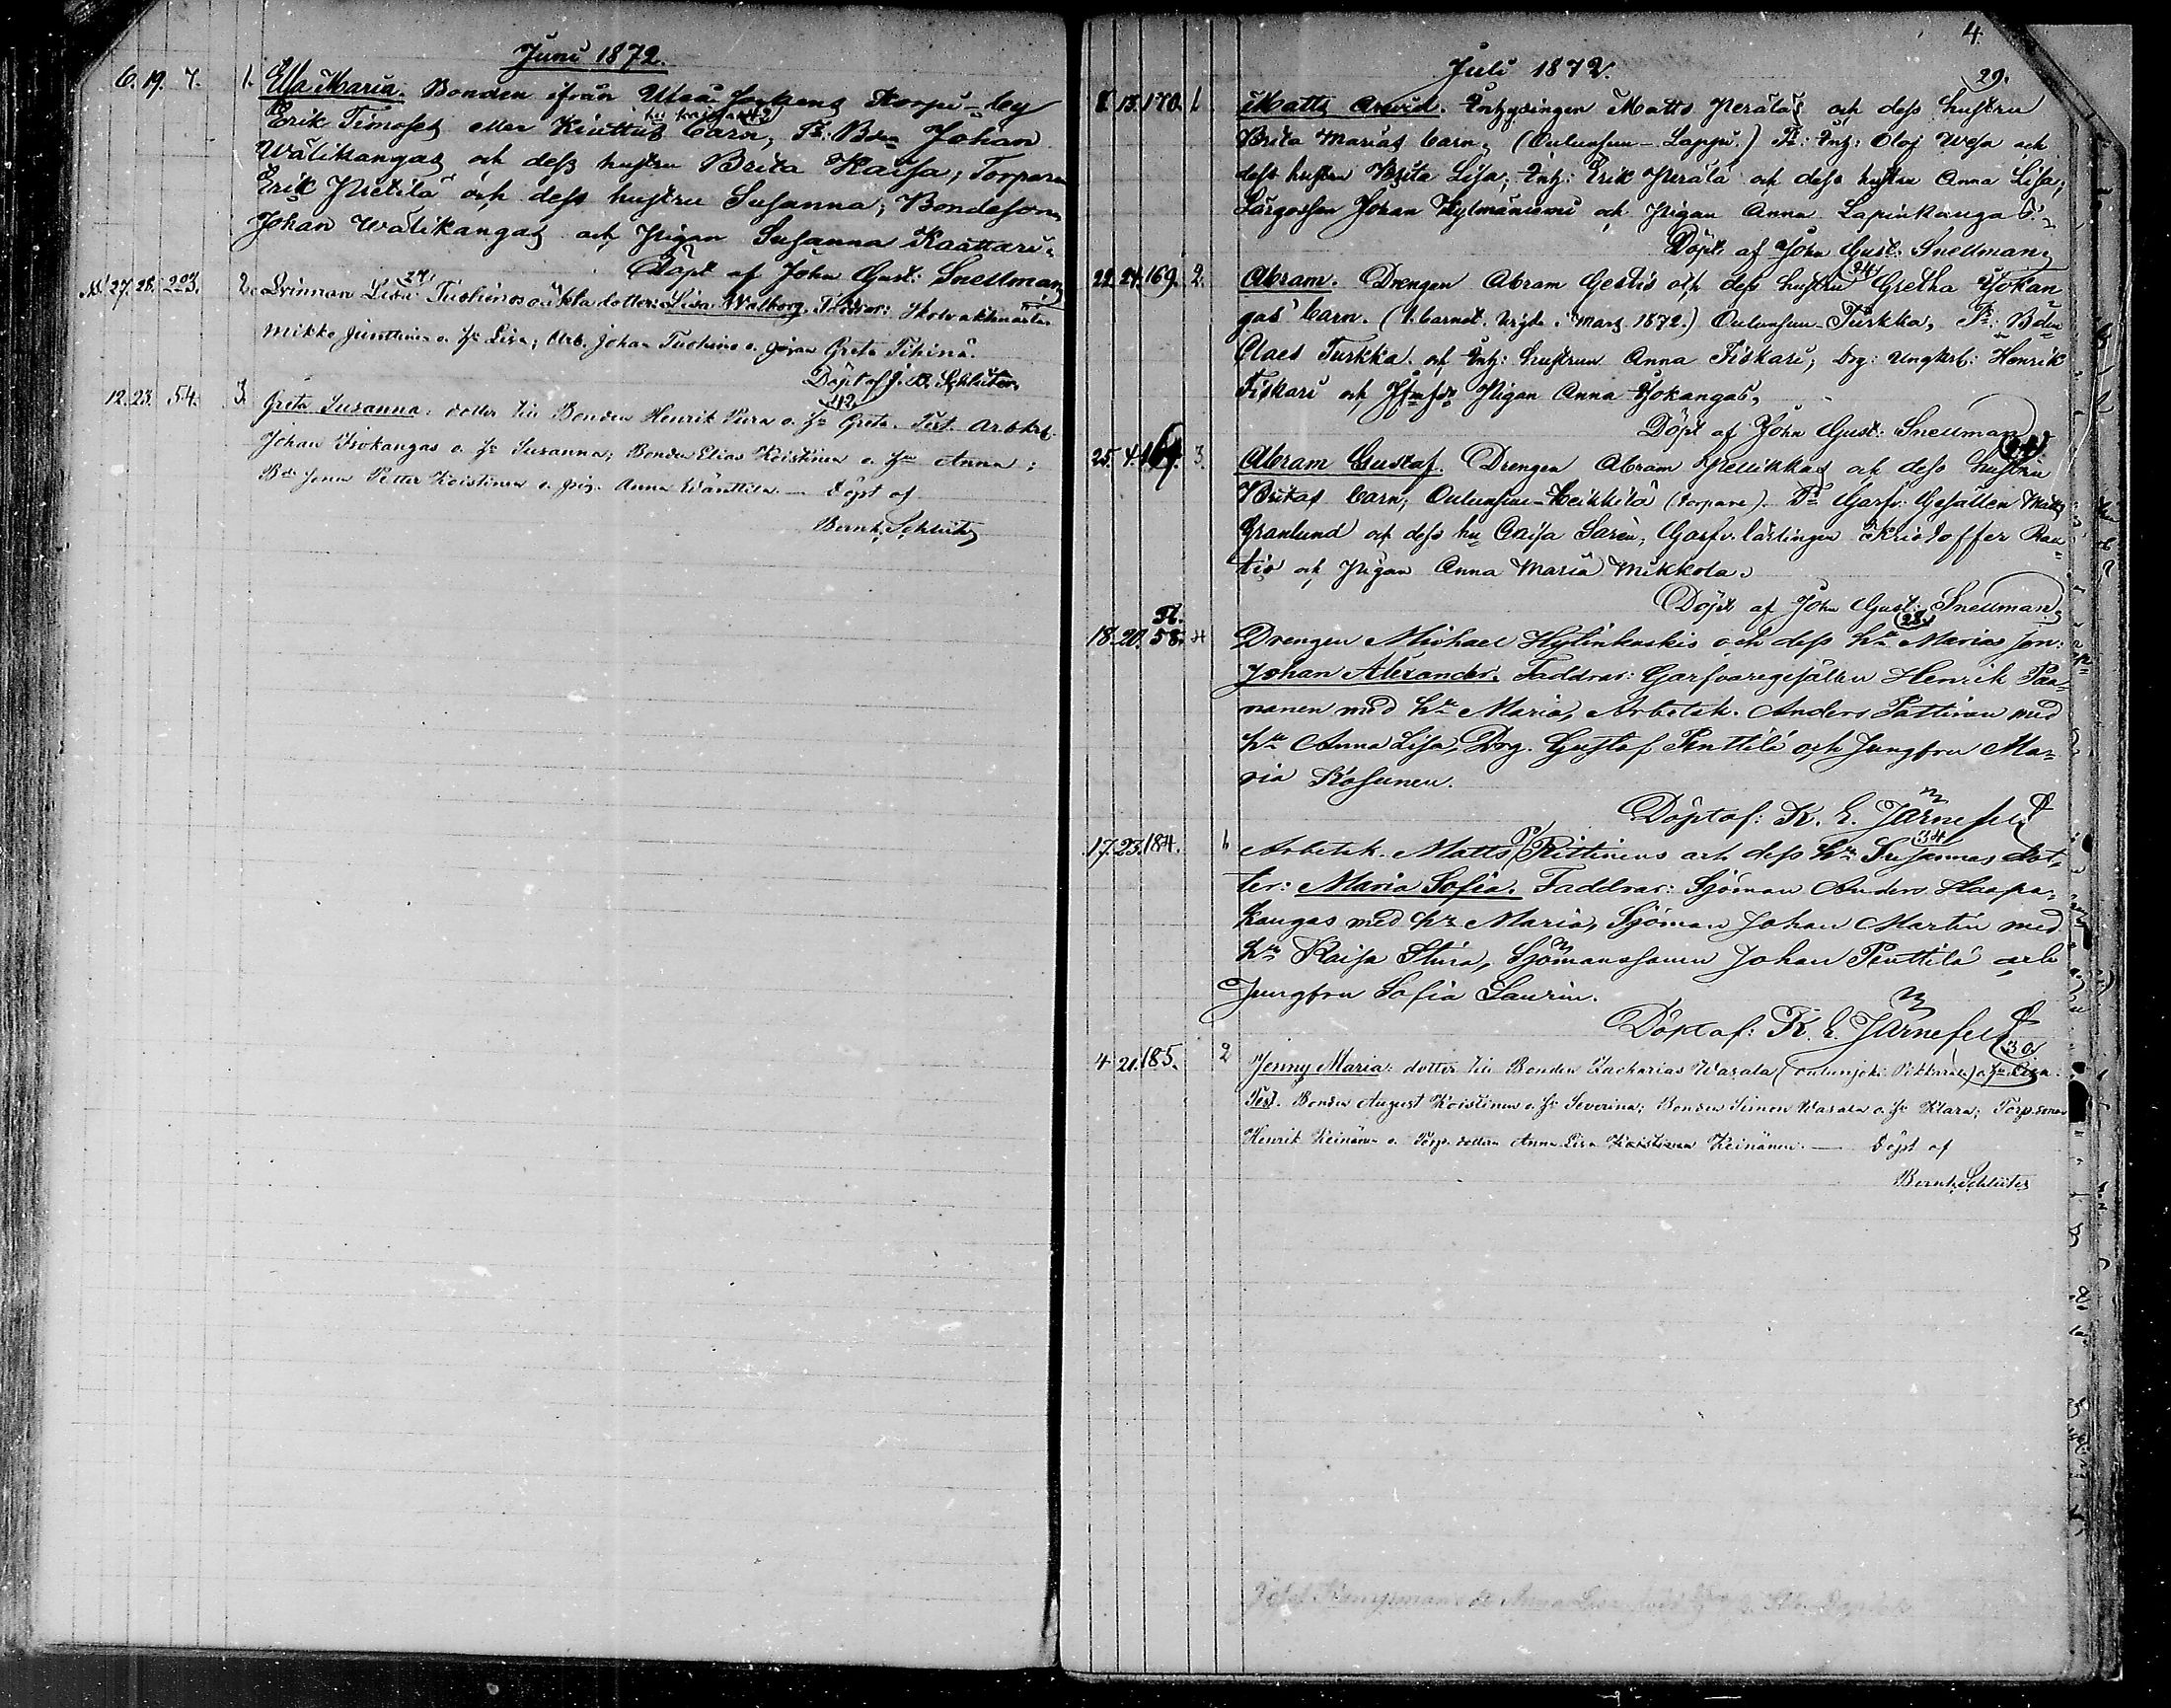 Juni 1872.
6. 19. 7. 1. Ella Maria. Bonden ifrån Uleå Sockens Korpi-by
Erik Timoses eller Kinttus barn, Fr: Bdn Johan
Wälikangas och dess hustru Brita Kaisa, Torparen
Erik Pietilä och dess hustru Susanna, Bondeson
Johan Wälikangas och Pigan Susanna Kaattari.
Döpt af John Gust: Snellman
27. 28. 203. 2. Qvinnan Lisa Tuohinos oäkta dotter: Lisa Walborg. Faddrar:
Mikko Junttinen o. h: Lisa, Arb. Johan Tuohino o. pigan Greta Pihina.
27
Döpt af J. B. Schlüter
12. 23. 54. 3. Greta Susanna: dotter till Bonden Henrik Piira o. hu Greta. Test. Arbkrl.
42
Johan Isokangas o. hu Susanna; Bonden Elias Koistinen o. hu Anna;
Bds. Petter Koistinen o. pig. Anna Wänttilä. — Döpt af
Bernh. Schlüter
4.
Juli 1872.
29.
8. 13. 170. 1. Matts Arwid. Inhysingen Matts Peräläs och dess hustru
Brita Marias barn, (Oulunsuu-Lappi.) Fr: Inh: Olof Wesa och
dess hustru Brita Lisa; Inh: Erik Perälä och dess hustru Anna Lisa;
Johan Hylmäniemi och Pigan Anna Lapinkangas.
Döpt af John Gust: Snellman
22. 24. 169. 2. Abram. Drengen Abram Gestis och dess hustru Gretha Yokan
24
gas' barn. (1. barnet. Wigde i Mars 1872.) Oulunsuu-Turkka, Fr: Bdn
Claes Turkka och Inh: hustrun Anna Fiskari; Drg: Ungkrl: Henrik
Fiskari och Pigan Anna Yokangas,
Döpt af John Gust: Snellman
25. 4. 164. 3. Abram Gustaf. Drengen Abram Pellikkas och dess hustru
Britas barn, Oulunsuu-Heikkilä (torpare). Fr Garfv: Gesällen Matts
Granlund och dess hu Caisa Saren, Garfv. lärlingen Kristoffer Rau
tio och Pigan Anna Maria Mikkola.
Döpt af John Gust: Snellman
Fl.
18. 20. 58. 4 Drengen Michael Hylinkoskis och dess hu Marias son:
28
Johan Alexander. Faddrar: Garfvaregesällen Henrik Paa-
nanen med hu Maria, Arbetsk. Anders Pattinen med
hu Anna Lisa, Drg. Gustaf Penttilä och Jungfru Ma-
ria Kosunen.
Döpt af: K. E. Järnefelt
17. 23. 184. 1. Arbetsk. Matts Pittinens och dess hu Susannas dot-
34
ter: Maria Sofia. Faddrar: Sjöman Anders Haapa-
kangas med hu Maria, Sjöman Johan Martin med
hu Kaisa Stina, Sjömanssonen Johan Penttilä och
Jungfru Sofia Laurin.
Döpt af: K. E. Järnefelt
4. 21. 185. 2 Jenny Maria: dotter till Bonden Zacharias Wasala (Oulunjoki Pikkarala) o. hu Lisa.
30
Test. Bonden August Koistinen o. hu Severina; Bonden Simon Wasala o. hu Klara; Torp.sonen
Henrik Keinänen o. Torp. dottern Anna Lisa Keinänen. — Döpt af
Bernh. Schlüter